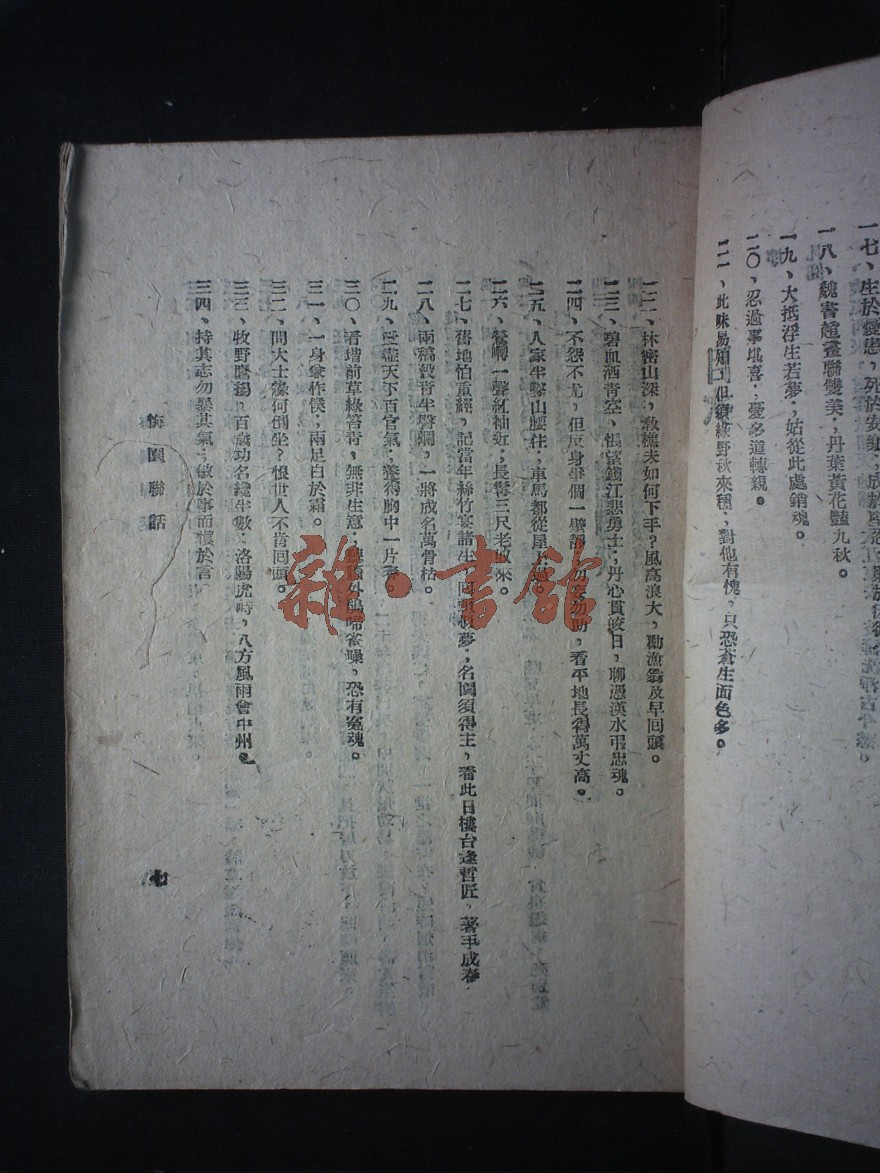 一七、生於憂患，死於安
一八、魏書趙畫聯雙美；丹葉黃花豔九秋。
一九、大抵浮生若夢；姑從此處銷魂。
二〇、忍過事堪喜；憂多道轉親。
二一、此味易 但須綠野秋來種；對他有愧，只恐蒼生面色多。
二二、林密山深，教樵夫如何下手？風高浪大，勸漁翁及早回頭。
二三、碧血洒青空，悵望錢江悲勇士；丹心貫皎日，聊憑漢水弔忠魂。
二四、不怨不尤，但反身爭個一壁靜；勿忘勿助，看平地長得萬丈高。
二五、人家半鑿山腰住，車馬都從屋上過。
二六、鶯囀一聲紅袖近；長髯三尺老 來。
二七、舊地怕重經，記當年絲竹宴諸生，回頭似夢；名園須得主，看此日樓台逢哲匠，著手成春
二八、兩稿 青半臂爛，一將成名萬骨枯。
二九、受盡天下百官氣；養得胸中一片春。
三〇、看堦前草綠苔青，無非生意；聽牆外鴉啼雀噪，恐有冤魂。
三一、一身兼作僕；兩足白於霜。
三二、問大士緣何倒坐？恨世人不肯回頭。
三三、牧野鷹揚，百歲功名纔半數；洛陽虎峙，八方風雨會中州。
三四、持其志勿暴其氣；敏於事而慎於言。
聯話
七
雜·書館